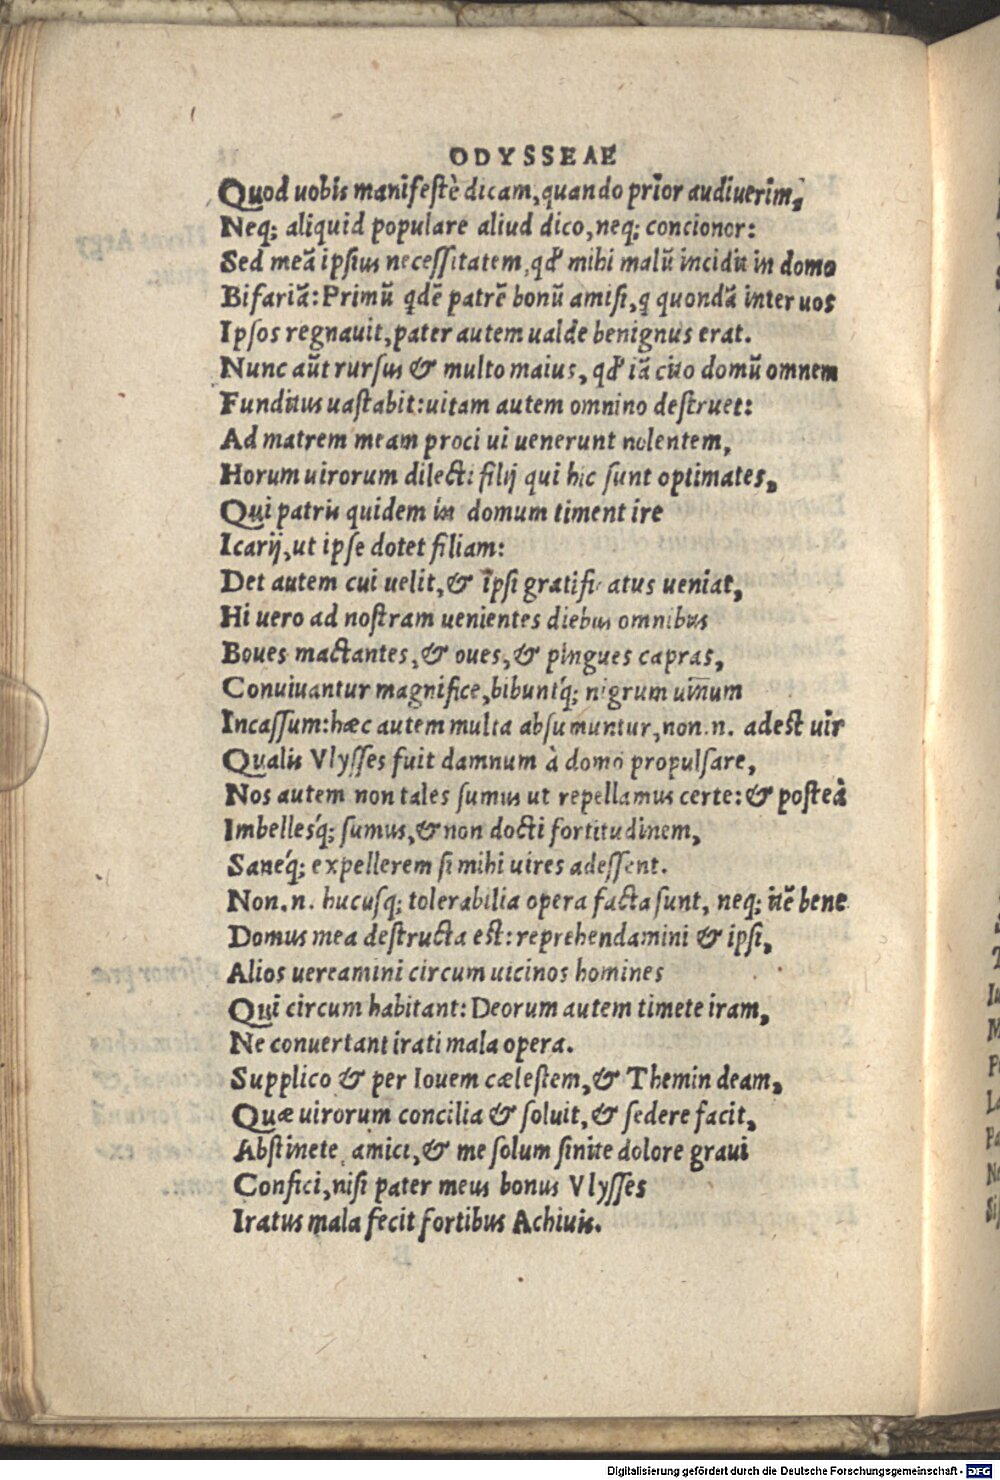 ODYSSEAE
Quod uobis manifestè dicam, quando prior audiuerim,
Neq; aliquid populare aliud dico, neq; concionor:
Sed meã ipsius necessitatem, qđ mihi malũ incidit in domo
Bifariã: Primũ qdẽ patrẽ bonũ amisi, q quondã inter uos
Ipsos regnauit, pater autem ualde benignus erat.
Nunc aũt rursus & multo maius, qđ iã cito domũ omnem
Funditus uastabit: uitam autem omnino destruet:
Ad matrem meam proci ui uenerunt nolentem,
Horum uirorum dilecti filij qui hic sunt optimates,
Qui patris quidem in domum timent ire
Icarij, ut ipse dotet filiam:
Det autem cui uelit, & ipsi gratifi atus ueniat,
Hi uero ad nostram uenientes diebus omnibus
Boues mactantes, & oues, & pingues capras,
Conuiuantur magnifice, bibuntq́; nigrum uinum
Incassum: hæc autem multa absumuntur, non .n. adest uir
Qualis Vlysses fuit damnum à domo propulsare,
Nos autem non tales sumus ut repellamus certe: & posteà
Imbellesq́; sumus, & non docti fortitudinem,
Saneq́; expellerem si mihi uires adessent.
Non .n. hucusq; tolerabilia opera facta sunt, neq; itẽ bene
Domus mea destructa est: reprehendamini & ipsi,
Alios uereamini circum uicinos homines
Qui circum habitant: Deorum autem timete iram,
Ne conuertant irati mala opera.
Supplico & per Iouem cælestem, & Themin deam,
Quæ uirorum concilia & soluit, & sedere facit,
Abstinete, amici, & me solum sinite dolore graui
Confici, nisi pater meus bonus Vlysses
Iratus mala fecit fortibus Achiuis.
Digitalisierung gefördert durch die Deutsche Forschungsgemeinschaft - DFG